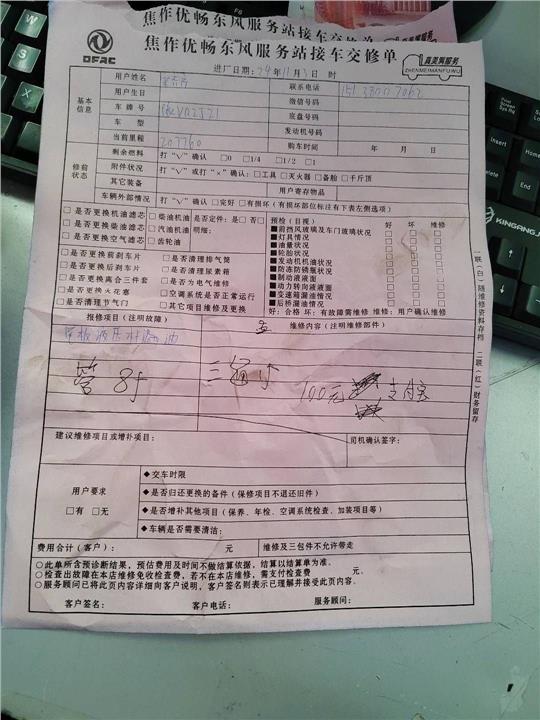 焦作优畅东风服务站接车交修单
DFAC
焦作优畅东风服务站接车交修单
真美满服务
ZHENMEIMANFUWU
进厂日期:24年11月3日 时
基本信息
用户姓名
联系电话
用户生日
微信号码
车牌号
底盘号码
车型
发动机号码
当前里程 207760
购车时间 年 月 日
修前状态
剩余燃料 打“√”确认 □0 □1/4 □1/2 □1
附件状况 打“√”或打“×”确认:□工具 □灭火器 □备胎 □千斤顶
其它装备
用户寄存物品
车辆外部情况 打“√”确认 □完好 □有损坏(有损坏部位标注有下表左侧选项)
□是否更换机油滤芯 □柴油机油 是否定件:是□ 否□
□是否更换柴油滤芯 □汽油机油 明细:
□是否更换空气滤芯 □齿轮油
□是否更换前刹车片 □是否清理排气筒
□是否更换后刹车片 □是否清理尿素箱
□是否更换离合三件套 □是否为电气维修
□是否更换火花塞 □空调系统是否正常运行
□是否清理节气门 □其它项目维修及更换
预检(目视) 好 坏 维修
■前挡风玻璃及车门玻璃状况 □ □ □
■灯具情况 □ □ □
■油量状况 □ □ □
■轮胎状况 □ □ □
■发动机机油状况 □ □ □
■防冻防锈瓶状况 □ □ □
■制动液液面 □ □ □
■动力转向液液面 □ □ □
■变速箱漏油情况 □ □ □
■后桥漏油情况 □ □ □
好:合格 坏:有故障需维修 维修:用户确认维修
报修项目(注明故障)
维修内容(注明维修部件)
管 8寸
三通
100元
建议维修项目或增补项目:
司机确认签字:
用户要求
□有 □无
◆交车时限
◆是否归还更换的备件(保修项目不退还旧件)
◆是否增补其他项目(保养、年检、空调系统检查、加装项目等)
◆车辆是否需要清洁:
费用合计(客户): 元
维修及三包件不允许带走
○此单所含预诊断结果,预估费用及时间不做结算依据,结算以结算单为准。
○检查出故障在本店维修免收检查费,若不在本店维修,需支付检查费 元。
○服务顾问已将此页内容详细向客户说明,客户签名则表示已理解并接受此页内容。
客户签名: 客户电话: 服务顾问:
一联(白)随维修资料存档 二联(红)财务留存
KINGANGJ